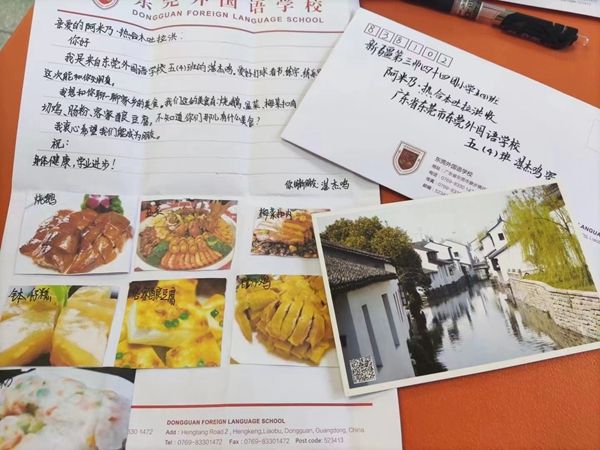 东莞外国语学校
DONGGUAN FOREIGN LANGUAGE SCHOOL
亲爱的阿米乃·热合木吐拉洪:
你好
我是来自东莞外国语学校五(4)班的湛杰鸣。爱好打球、看书、练字、
这次能和你交朋友。
我想和你聊一聊家乡的美食。我们这的美食有:烧鹅、盆菜、梅菜扣肉、
切鸡、肠粉、客家酿豆腐,不知道你们那儿有什么美食?
我衷心希望我们能成为朋友。
祝:
身体健康,学业进步!
湛杰鸣
烧鹅
梅菜扣肉
客家酿豆腐
838102
新疆第三师四十四团小学
阿米乃·热合木吐拉洪收
广东省东莞市东莞外国语学校
五(4)班 湛杰鸣寄
东莞外国语学校
电话:0769-8330
传真:0769-8330
邮编:5234
DONGGUAN FOREIGN LANGUAGE SCHOOL
Add : Hengtang Road 2, Hengkeng,Liaobu, Dongguan, Guangdong, China
Tel : 0769-83301472 Fax : 0769-83301472 Post code: 523413